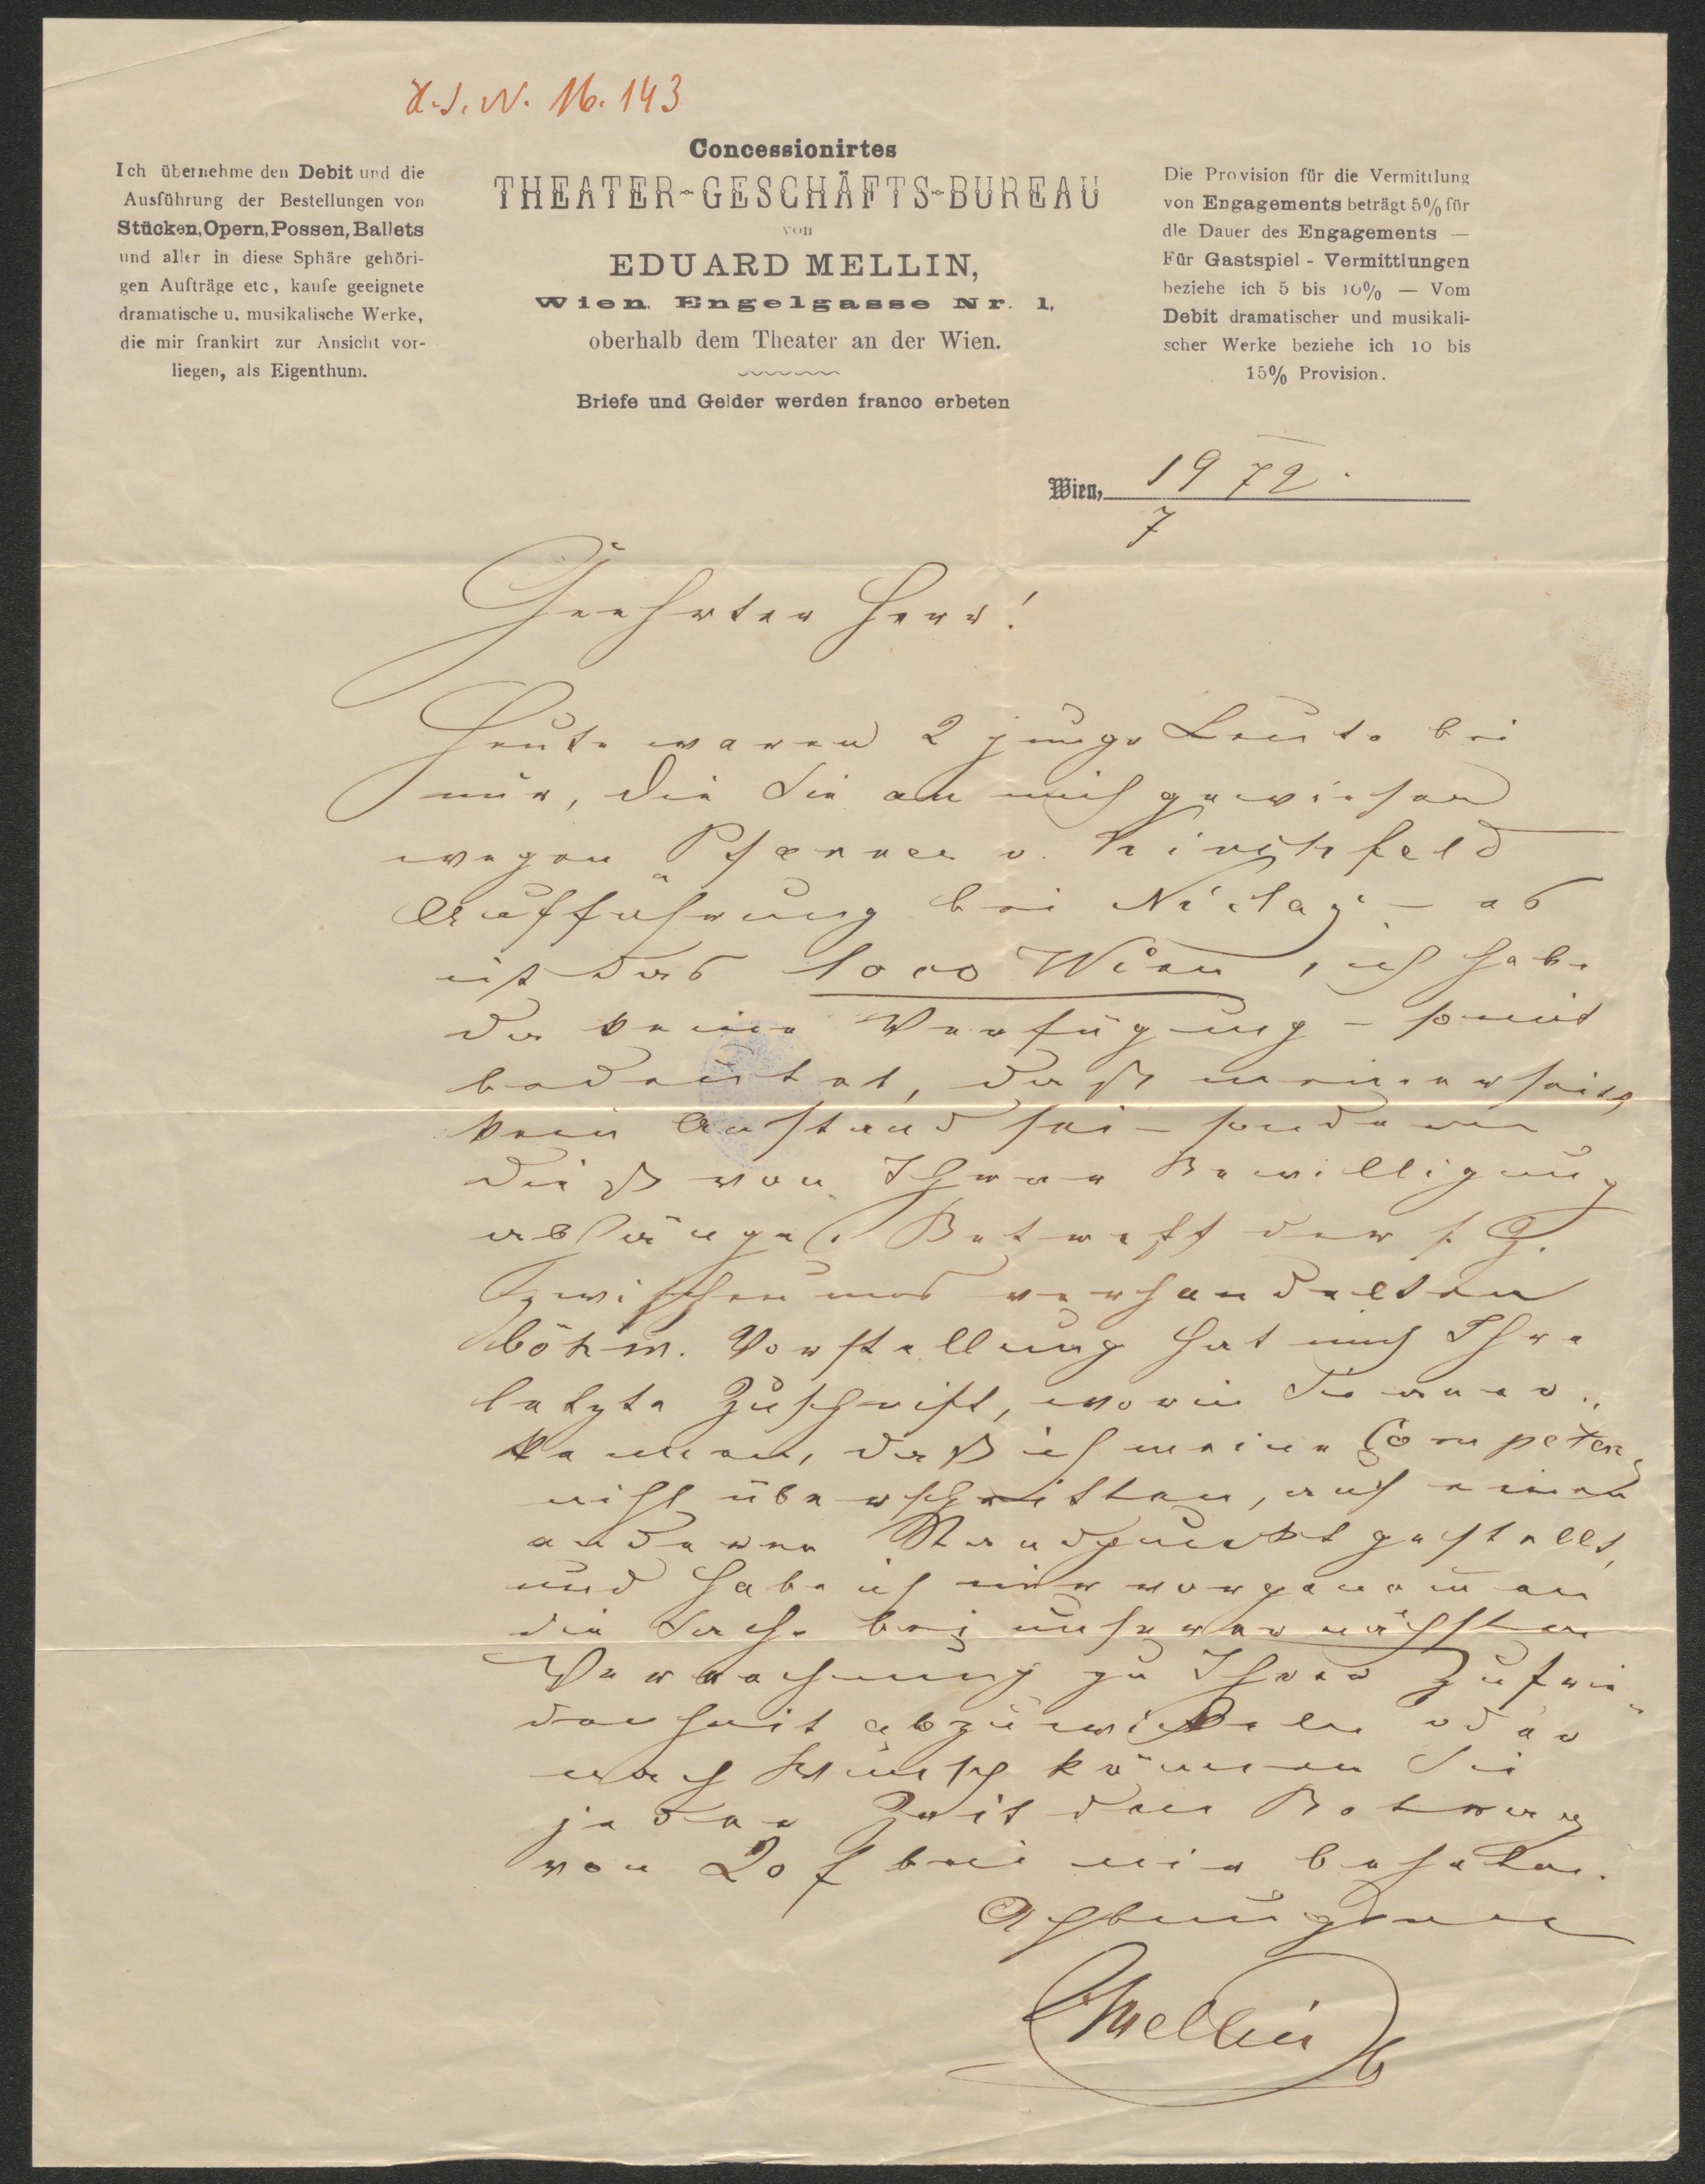 H.I.N. 16.143
Ich übernehme den Debit und die
Ausführung der Bestellungen von
Stücken, Opern, Possen, Ballets
und aller in diese Sphäre gehöri-
gen Aufträge etc, kaufe geeignete
dramatische u. musikalische Werke,
die mir frankirt zur Ansicht vor-
liegen, als Eigenthum.
Concessionirtes
THEATER-GESCHÄFTS-BUREAU
von
EDUARD MELLIN,
Wien. Engelgasse Nr. 1,
oberhalb dem Theater an der Wien.
Briefe und Gelder werden franco erbeten
Die Provision für die Vermittlung
von Engagements beträgt 5% für
die Dauer des Engagements —
Für Gastspiel - Vermittlungen
beziehe ich 5 bis 10% — Vom
Debit dramatischer und musikali-
scher Werke beziehe ich 10 bis
15% Provision.
Wien, 19 72.
7
Geehrter Herr!
Heute waren 2 junge Leute bei
mir, die Sie an mich gewiesen
wegen Pfarrer v. Kirchfeld
Aufführung bei Niclas – es
ist das loco Wien, ich habe
da keine Verfügung – somit
bedeutet, daß meinerseits
kein Anstand sei – sondern
dieß von Ihrer Bewilligung
abhänge. Betreff der s. Z.
zwischen uns verhandelten
böhm. Vorstellung hat mich Ihre
letzte Zuschrift, worin Sie aner-
kennen, daß ich meine Competenz
nicht überschritten, auf einen
anderen Standpunkt gestellt,
und habe ich mir vorgenom̅en
die Sache bei unserer nächsten
Verrechnung zu Ihrer Zufrie-
denheit abzuwickeln oder
nach Wunsch können Sie
jeder Zeit den Betrag
von 20 f bei mir beheben.
Achtungsvoll
EMellin